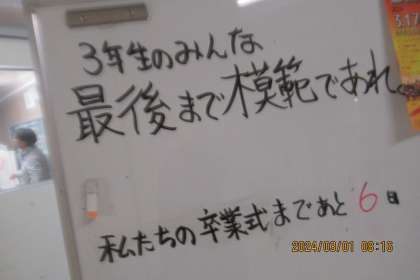 3年生のみんな
最後まで模範であれ
私たちの卒業式まであと6日
3.17
2024/03/01 08:16